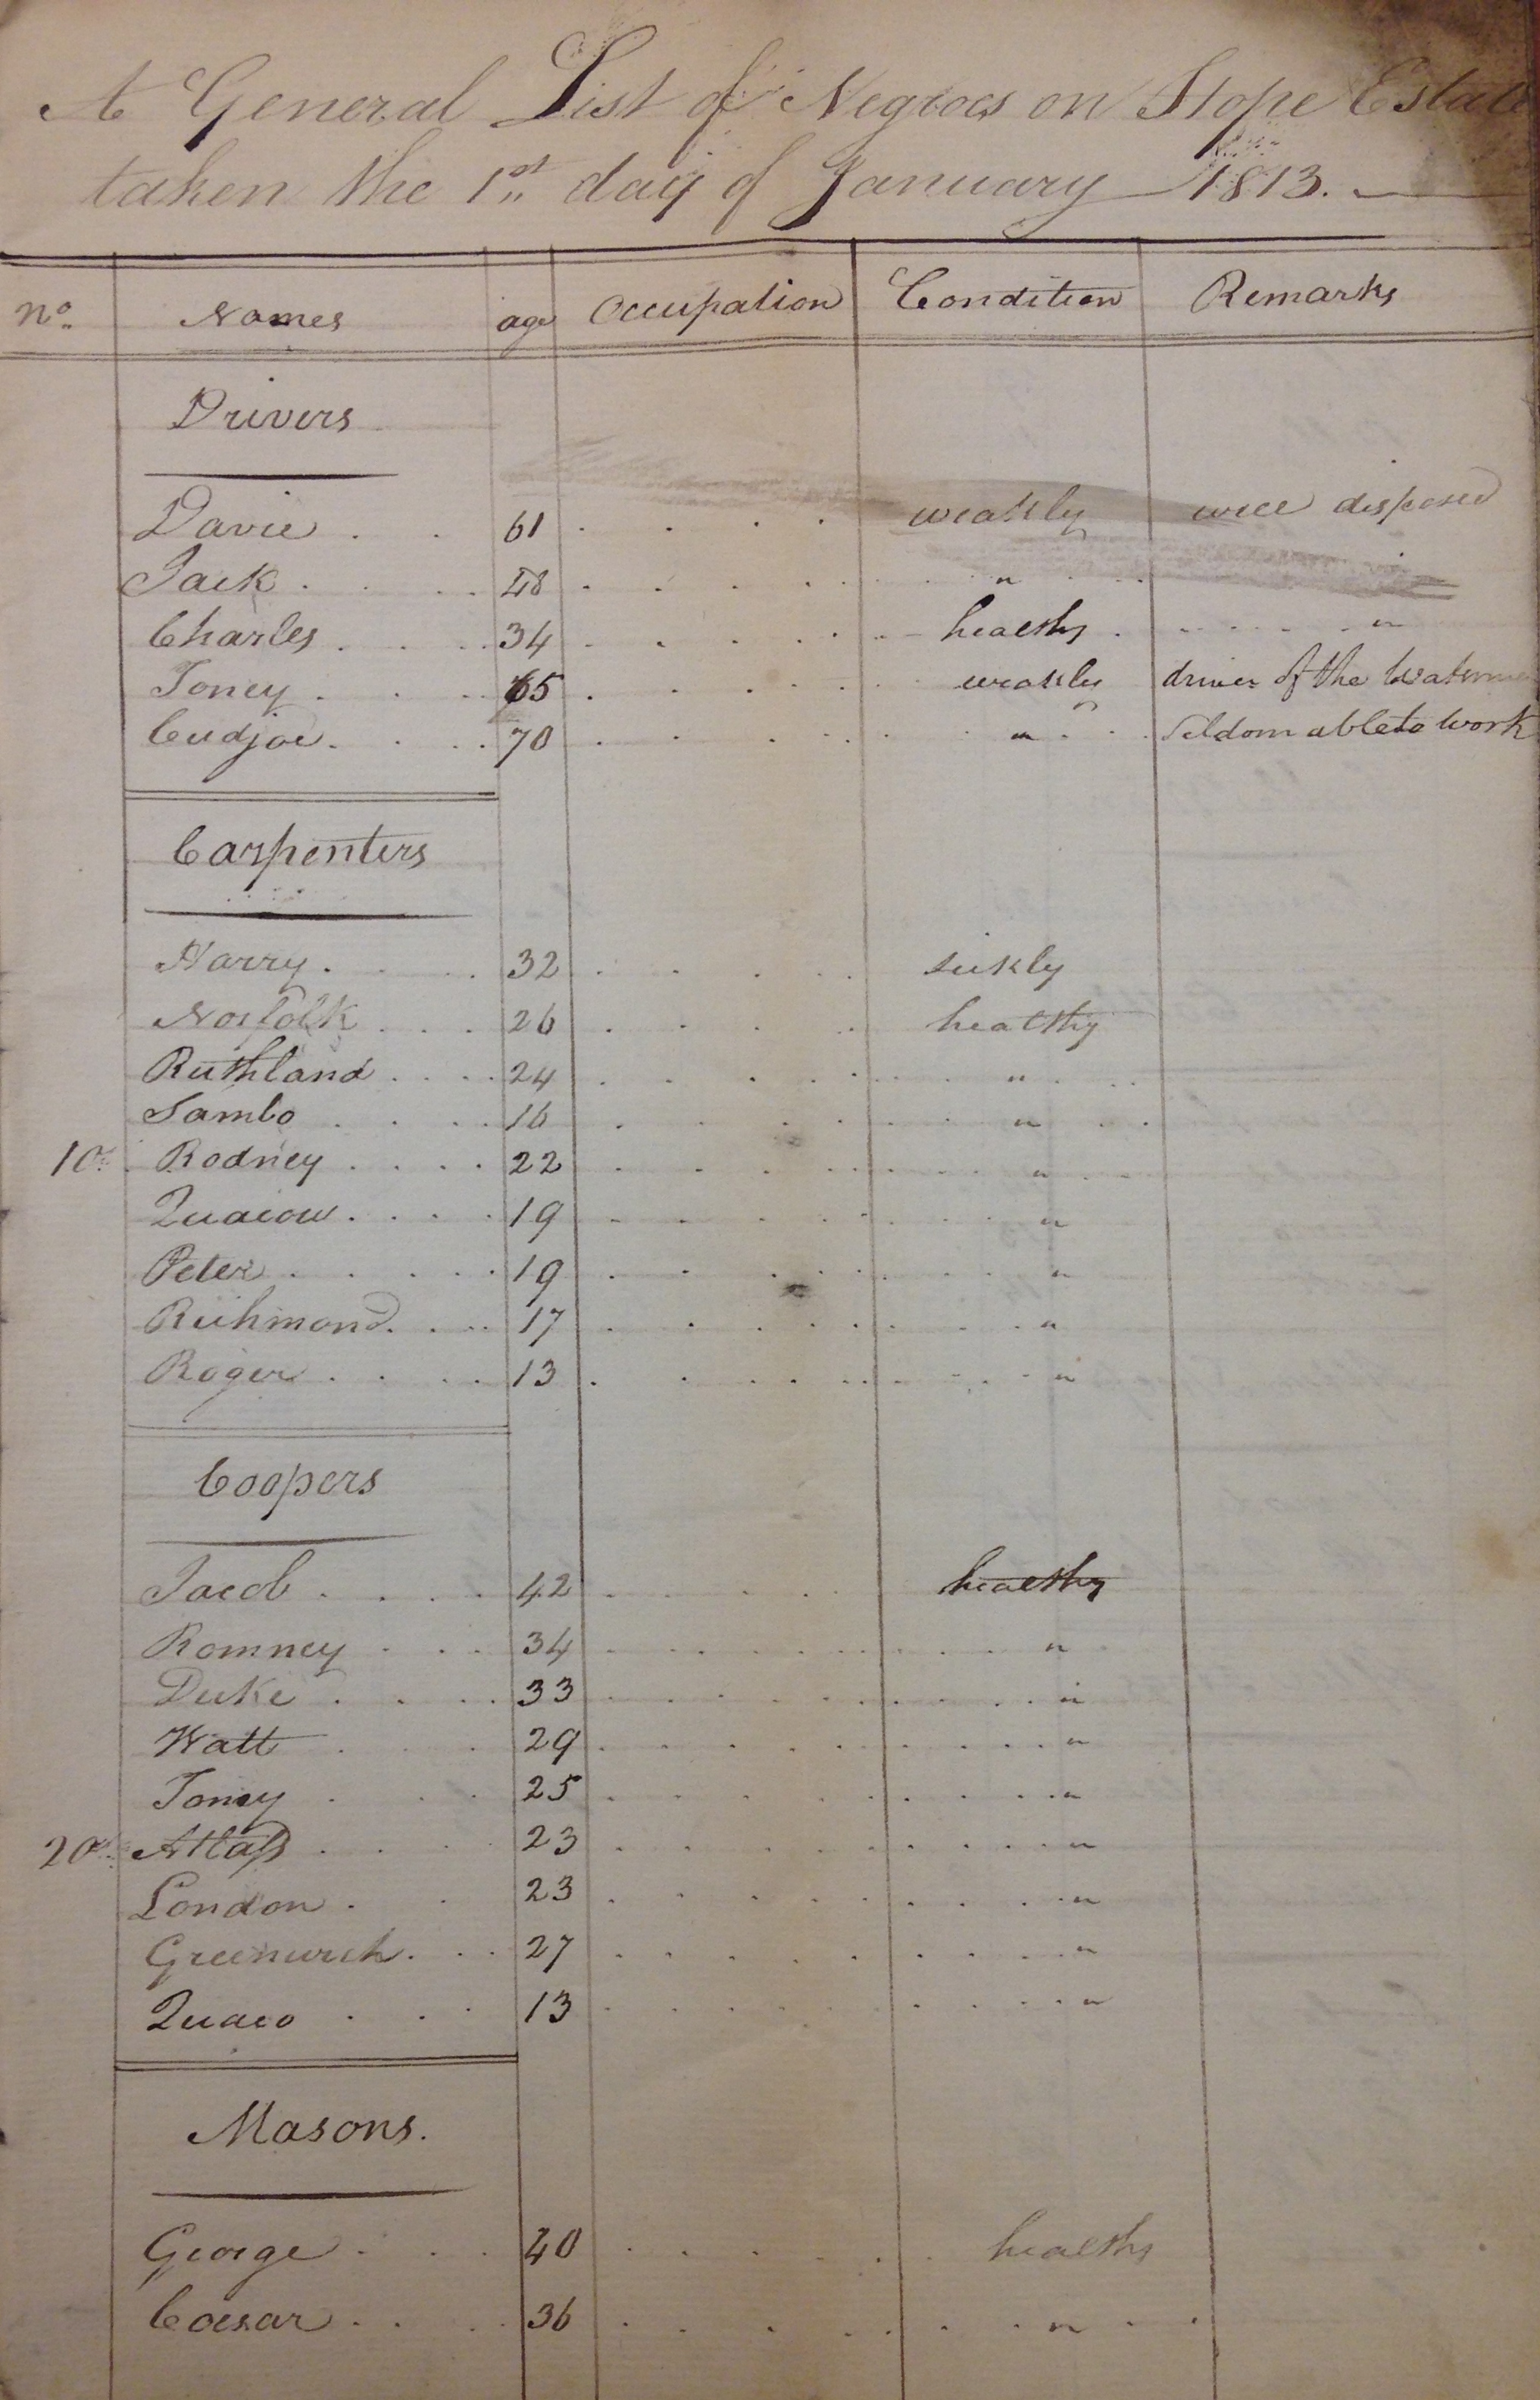 A General List of Negroes on Hope Estate
taken the 1st day of January 1813.
No. Names age Occupation Condition Remarks
Drivers
Davie . . 61 . . . . weakly well disposed
Jack . . . 48 . . . . . "
Charles . . . 34 . . . . . healthy . . . . . "
Toney . . . 65 . . . . . weakly driver of the
Cudjoe . . . 70 . . . . . " . . Seldom able to work
Carpenters
Harry . . . 32 . . . . sickly
Norfolk . . . 26 . . . . healthy
Ruthland . . . . 24 . . . . . "
Sambo . . . 16 . . . . . "
10 Rodney . . . . 22 . . . . . "
Quacow . . . . 19 . . . . . "
Peter . . . . . 19 . . . . . "
Richmond . . . 17 . . . . . "
Roger . . . . 13 . . . . . "
Coopers
Jacob . . . . 42 . . . . healthy
Romney . . . 34 . . . . . "
Duke . . . . 33 . . . . . "
Watt . . . 29 . . . . . "
Toney . . . 25 . . . . . "
20 Atlass . . . 23 . . . . . "
London . . 23 . . . . . "
Greenwich . . . 27 . . . . . "
Quaco . . . 13 . . . . . "
Masons.
George . . . 40 . . . . . healthy
Coesar . . . 36 . . . . . "